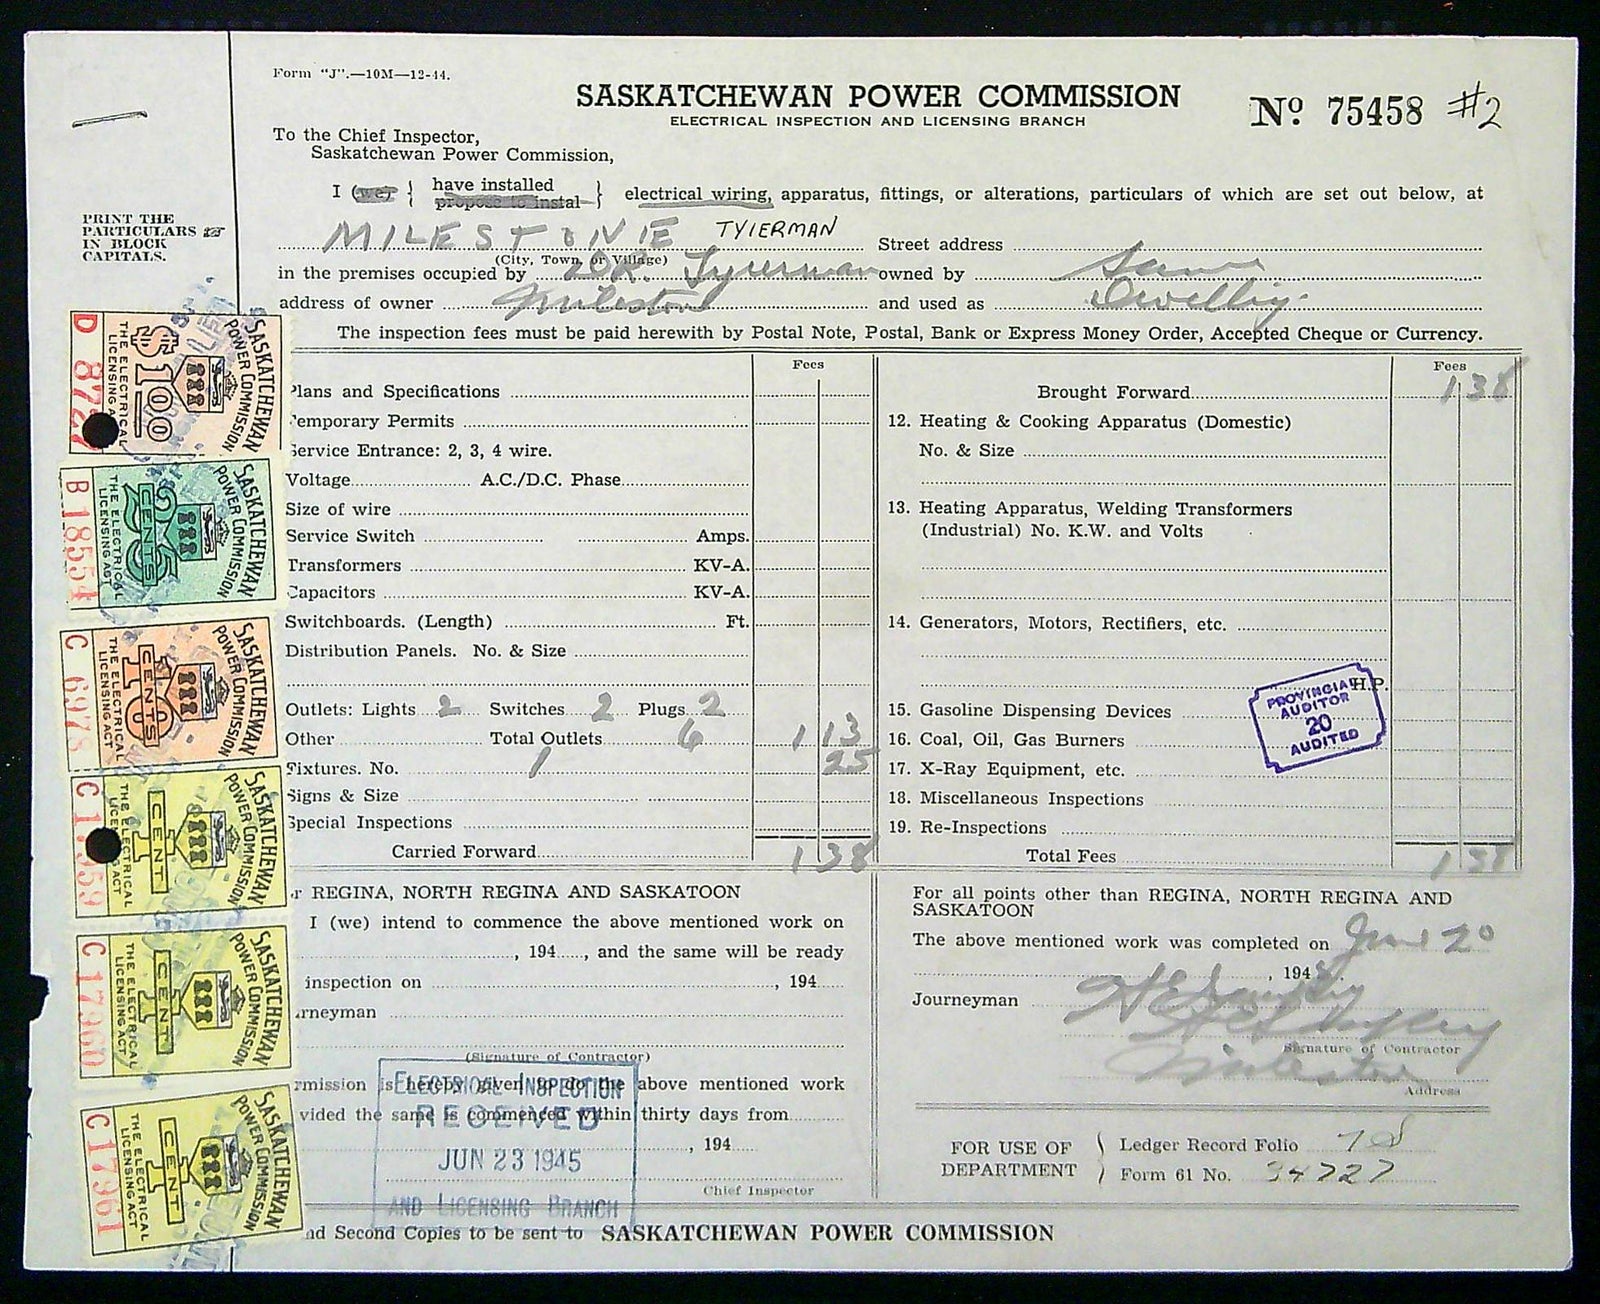 Form "J".—10M—12-44.
SASKATCHEWAN POWER COMMISSION
ELECTRICAL INSPECTION AND LICENSING BRANCH
Nº 75458 #2
To the Chief Inspector,
Saskatchewan Power Commission,
I (we) { have installed propose to instal } electrical wiring, apparatus, fittings, or alterations, particulars of which are set out below, at
PRINT THE
PARTICULARS
IN BLOCK
CAPITALS.
MILESTONE TYIERMAN Street address
(City, Town, or Village)
in the premises occupied by Tyierman owned by Same
address of owner Milestone and used as Dwelling.
The inspection fees must be paid herewith by Postal Note, Postal, Bank or Express Money Order, Accepted Cheque or Currency.
Fees
Plans and Specifications
Temporary Permits
Service Entrance: 2, 3, 4 wire.
Voltage A.C./D.C. Phase
Size of wire
Service Switch Amps.
Transformers KV-A.
Capacitors KV-A.
Switchboards. (Length) Ft.
Distribution Panels. No. & Size
Outlets: Lights 2 Switches 2 Plugs 2
Other Total Outlets 6 1 13
Fixtures. No. 1 25
Signs & Size
Special Inspections
Carried Forward 1 38
Fees
Brought Forward 1 38
12. Heating & Cooking Apparatus (Domestic)
No. & Size
13. Heating Apparatus, Welding Transformers
(Industrial) No. K.W. and Volts
14. Generators, Motors, Rectifiers, etc.
H.P.
15. Gasoline Dispensing Devices
16. Coal, Oil, Gas Burners
17. X-Ray Equipment, etc.
18. Miscellaneous Inspections
19. Re-Inspections
Total Fees 1 38
PROVINCIAL
AUDITOR
20
AUDITED
r REGINA, NORTH REGINA AND SASKATOON
I (we) intend to commence the above mentioned work on
, 194 , and the same will be ready
inspection on , 194
rneyman
(Signature of Contractor)
rmission is hereby given to do the above mentioned work
vided the same is commenced within thirty days from
, 194
Chief Inspector
ELECTRICAL INSPECTION
RECEIVED
JUN 23 1945
AND LICENSING BRANCH
For all points other than REGINA, NORTH REGINA AND
SASKATOON
The above mentioned work was completed on June 20
, 194
Journeyman
Signature of Contractor
Milestone
Address
FOR USE OF
DEPARTMENT
Ledger Record Folio
Form 61 No. 34727
nd Second Copies to be sent to SASKATCHEWAN POWER COMMISSION
SASKATCHEWAN
POWER COMMISSION
$1.00
THE ELECTRICAL
LICENSING ACT
D 87
SASKATCHEWAN
POWER COMMISSION
25
CENTS
THE ELECTRICAL
LICENSING ACT
B 18554
SASKATCHEWAN
POWER COMMISSION
10
CENTS
THE ELECTRICAL
LICENSING ACT
C 6978
SASKATCHEWAN
POWER COMMISSION
1
CENT
THE ELECTRICAL
LICENSING ACT
C 17959
SASKATCHEWAN
POWER COMMISSION
1
CENT
THE ELECTRICAL
LICENSING ACT
C 17960
SASKATCHEWAN
POWER COMMISSION
1
CENT
THE ELECTRICAL
LICENSING ACT
C 17961